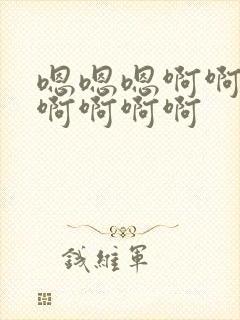 嗯嗯嗯啊啊
啊啊啊啊
钱維軍